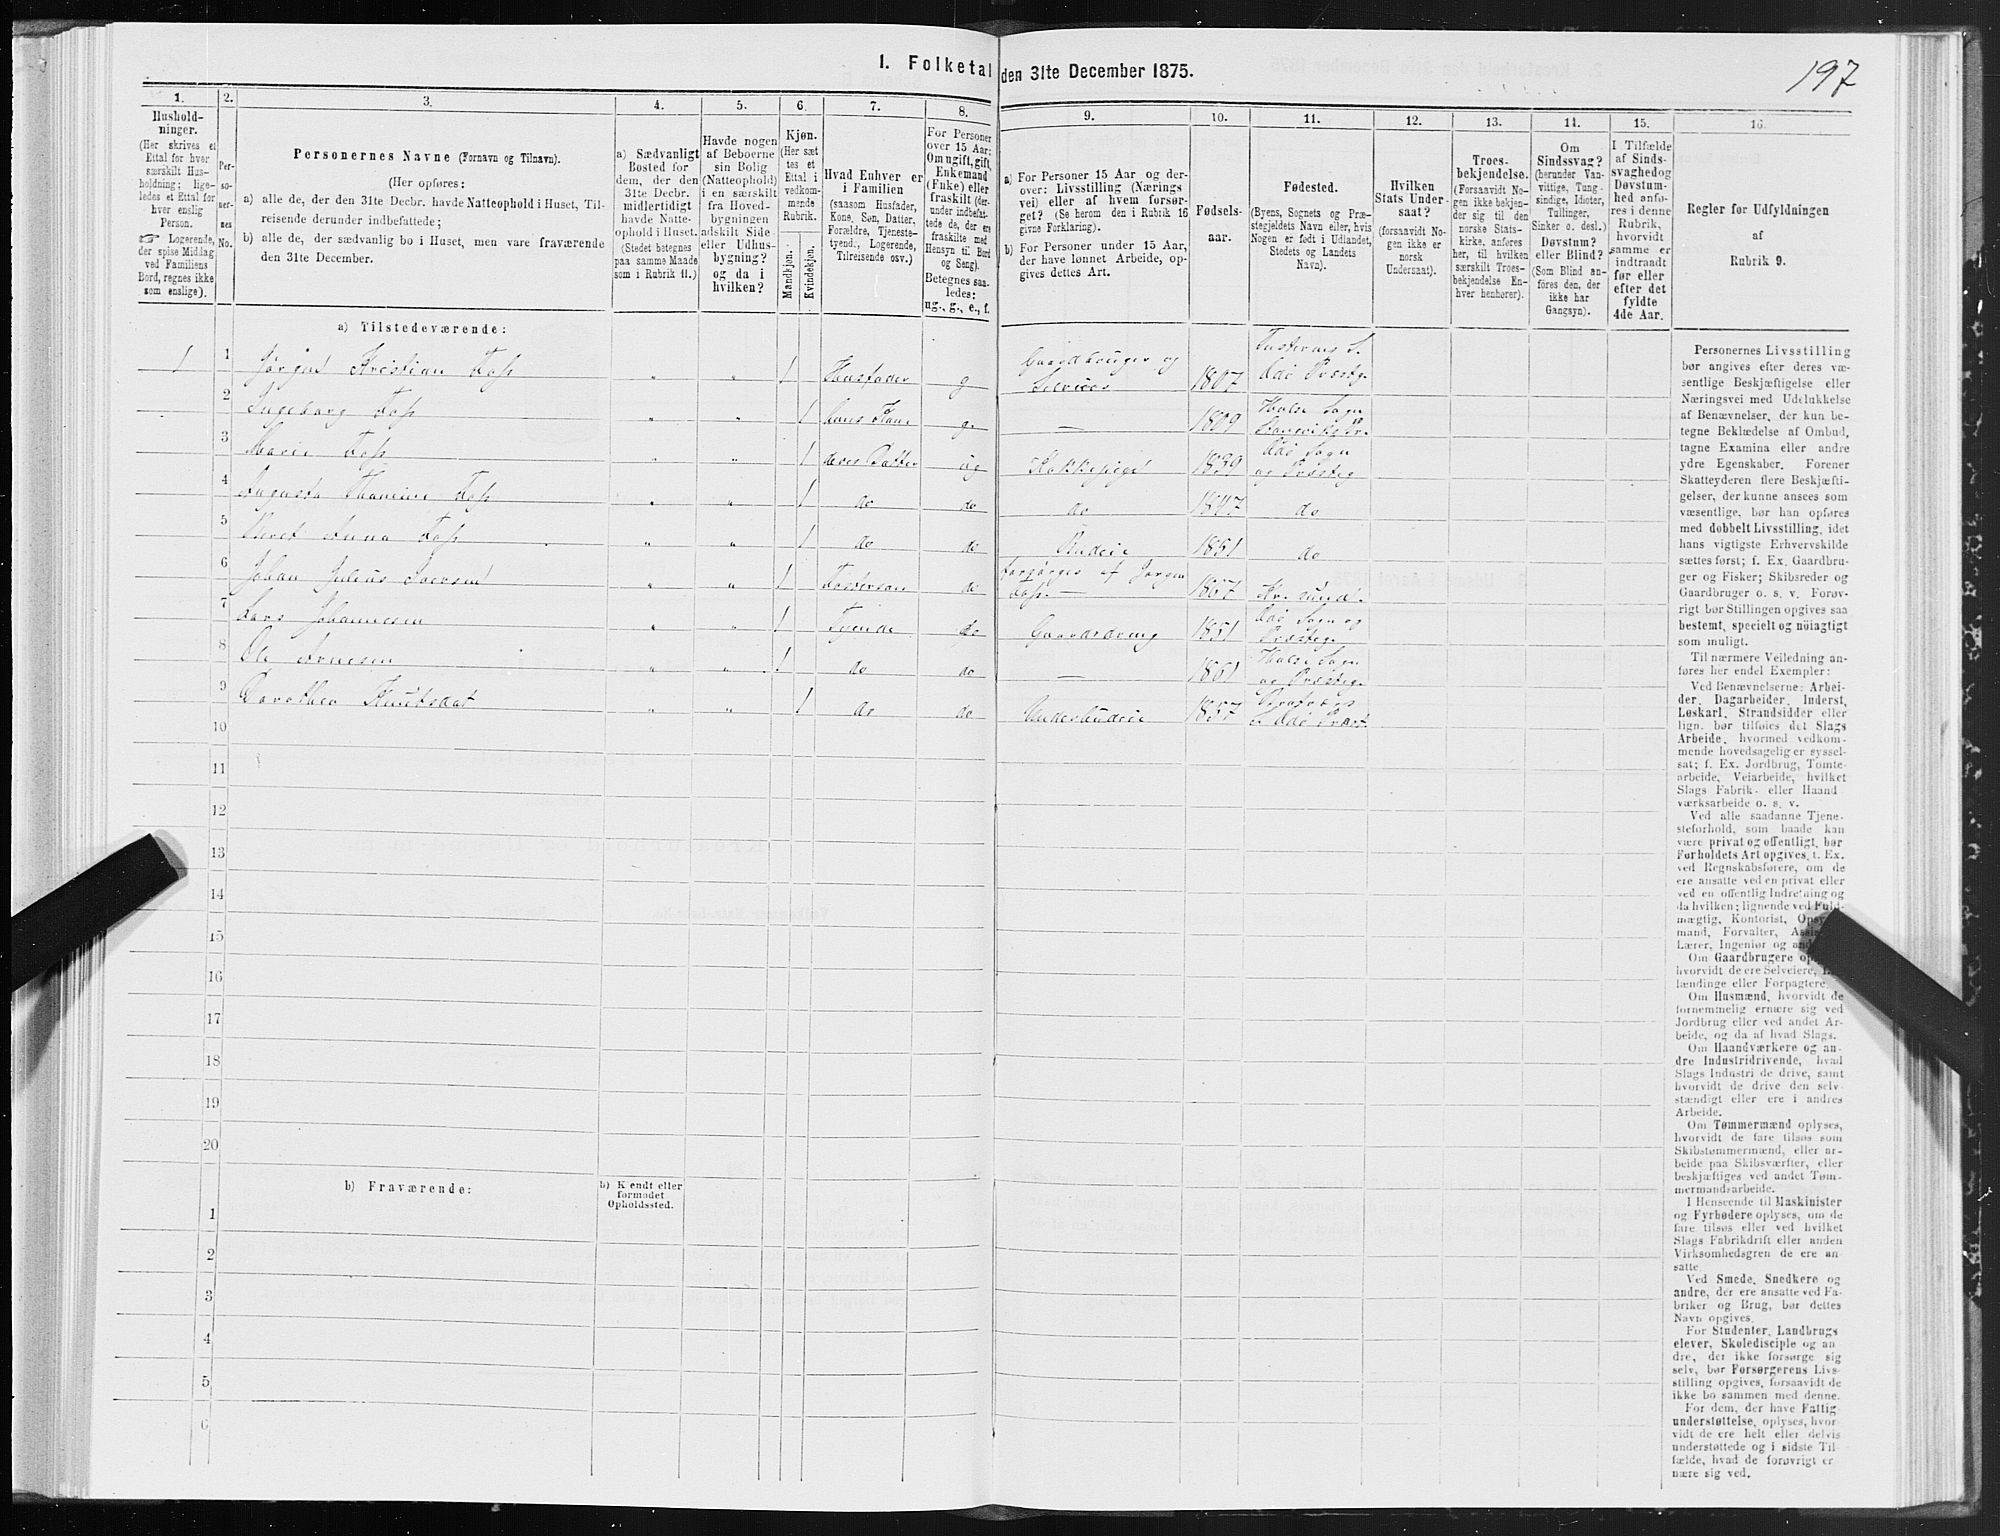 1. Folketal den 31te December 1875.
197
1.
Hushold-
ninger.
(Her skrives et
Ettal for hver
særskilt Hus-
holdning; lige-
ledes et Ettal for
hver enslig
Person.
☞ Logerende,
der spise Middag
ved Familiens
Bord, regnes ikke
som enslige).
2.
Per-
so-
ner-
nes
No.
3.
Personernes Navne (Fornavn og Tilnavn).
(Her opføres:
a) alle de, der den 31te Decbr. havde Natteophold i Huset, Til-
reisende derunder indbefattede;
b) alle de, der sædvanlig bo i Huset, men vare fraværende
den 31te December.
4.
a) Sædvanligt
Bosted for
dem, der den
31te Decbr.
midlertidigt
havde Natte-
ophold i Huset.
(Stedet betegnes
paa samme Maade
som i Rubrik 11.)
5.
Havde nogen
af Beboerne
sin Bolig
(Natteophold)
i en særskilt
fra Hoved-
bygningen
adskilt Side-
eller Udhus-
bygning?
og da i
hvilken?
6.
Kjøn.
(Her sæt
tes et
Ettal i
vedkom-
mende
Rubrik.
Mandkjøn.
Kvindekjøn.
7.
Hvad Enhver er
i Familien
(saasom Husfader,
Kone, Søn, Datter,
Forældre, Tjeneste-
tyend., Logerende,
Tilreisende osv.)
8.
For Personer
over 15 Aar:
Om ugift, gift,
Enkemand
(Enke) eller
fraskilt (der-
under indbefat-
tede de, der ere
fraskilte med
Hensyn til Bord
og Seng).
Betegnes saa-
ledes:
ug., g., e., f.
9.
a) For Personer 15 Aar og der-
over: Livsstilling (Nærings
vei) eller af hvem forsør-
get? (Se herom den i Rubrik 16
givne Forklaring).
b) For Personer under 15 Aar,
der have lønnet Arbeide, op-
gives dettes Art.
10.
Fødsels-
aar.
11.
Fødested.
(Byens, Sognets og Præ-
stegjeldets Navn eller, hvis
Nogen er født i Udlandet,
Stedets og Landets
Navn).
12.
Hvilken
Stats Under-
saat?
(forsaavidt No-
gen ikke er
norsk
Undersaat).
13.
Troes-
bekjendelse.
(Forsaavidt No-
gen ikke bekjen-
der sig til den
norske Stats-
kirke, anføres
her, til hvilken
særskilt Troes-
bekjendelse En-
hver henhører).
14.
Om
Sindssvag?
(herunder Van-
vittige, Tung-
sindige, Idioter,
Tullinger,
Sinker o. desl.)
Døvstum?
eller Blind?
(Som Blind an-
føres den, der
ikke har
Gangsyn).
15.
I Tilfælde
af Sinds-
svaghed og
Døvstum-
hed anfø-
res i denne
Rubrik,
hvorvidt
samme er
indtraadt
før eller
efter det
fyldte
4de Aar.
16.
Regler for Udfyldningen
af
Rubrik 9.
a) Tilstedeværende:
1 1 Jørgen Kristian Foss " " 1 Husfader g Gaardbruger og Selveier 1807 Tusternes S. Edø Præsteg.
2 Ingeborg Foss " " 1 hans Kone g. — 1809 Halse Sogn
3 Marie Foss " " 1 deres Datter ug Kokkepige 1839 Edø Sogn og Præsteg
4 Augusta Foss " " 1 do do do 1847 do
5 Meret Anna Foss " " 1 do do Budeie 1851 do
6 Johan Julius Iversen " " 1 Fostersøn do forsørges af Jørgen Foss. — 1867 Kr. sund.
7 Lars Johannesen " " 1 Tjende do Gaardsdreng 1851 Edø Sogn og Præsteg.
8 Ole Arnesen " " 1 do do — 1861 Halse Sogn og Præsteg.
9 Dorothea Knutsdat " " 1 do do Underbudeie 1857 S. Edø Præst.
10
11
12
13
14
15
16
17
18
19
20
b) Fraværende:
b) Kendt eller
formodet
Opholdssted.
1
2
3
4
5
6
Personernes Livsstilling
bør angives efter deres væ-
sentlige Beskjæftigelse eller
Næringsvei med Udelukkelse
af Benævnelser, der kun be-
tegne Beklædelse af Ombud,
tagne Examina eller andre
ydre Egenskaber. Forener
Skatteyderen flere Beskjæfti-
gelser, der kunne ansees som
væsentlige, bør han opføres
med dobbelt Livsstilling, idet
hans vigtigste Erhvervskilde
sættes først; f. Ex. Gaardbru-
ger og Fisker; Skibsreder og
Gaardbruger o. s. v. Forøv-
rigt bør Stillingen opgives saa
bestemt, specielt og nöiagtigt
som muligt.
Til nærmere Veiledning an-
føres her endel Exempler:
Ved Benævnelserne: Arbei-
der, Dagarbeider, Inderst,
Løskarl, Strandsidder eller
lign. bør tilføies det Slags
Arbeide, hvormed vedkom-
mende hovedsagelig er syssel-
sat; f. Ex. Jordbrug, Tomte-
arbeide, Veiarbeide, hvilket
Slags Fabrik- eller Haand
værksarbeide o. s. v.
Ved alle saadanne Tjene-
steforhold, som baade kan
være privat og offentligt, bør
Forholdets Art opgives, t. Ex.
ved Regnskabsførere, om de
ere ansatte ved en privat eller
ved en offentlig Indretning og
da hvilken; lignende ved Fuld-
mægtig, Kontorist, Opsy-
mand, Forvalter, Assis
Lærer, Ingeniør og and
Om Gaardbrugere op
hvorvidt de ere Selveiere,
lændinge eller Forpagtere.
Om Husmænd, hvorvidt de
fornemmelig ernære sig ved
Jordbrug eller ved andet Ar-
beide, og da af hvad Slags.
Om Haandværkere og an-
dre Industridrivende, hvad
Slags Industri de drive, samt
hvorvidt de drive den selv-
stændigt eller ere i andres
Arbeide.
Om Tømmermænd oplyses,
hvorvidt de fare tilsøs som
Skibstømmermænd, eller ar-
beide paa Skibsværfter, eller
beskjæftiges ved andet Tøm-
mermandsarbeide.
I Henseende til Maskinister
og Fyrbødere oplyses, om de
fare tilsøs eller ved hvilket
Slags Fabrikdrift eller anden
Virksomhedsgren de ere an-
satte.
Ved Smede, Snedkere og
andre, der ere ansatte ved Fa-
briker og Brug, bør dettes
Navn opgives.
For Studenter, Landbrugs
elever, Skoledisciple og an
dre, der ikke forsørge sig
selv, bør Forsørgerens Livs-
stilling opgives, forsaavidt de
ikke bo sammen med denne.
For dem, der have Fattig
understøttelse, oplyses, hvor-
vidt de ere helt eller delvis
understøttede og i sidste Til-
fælde, hvad de forøvrigt er
nære sig ved.